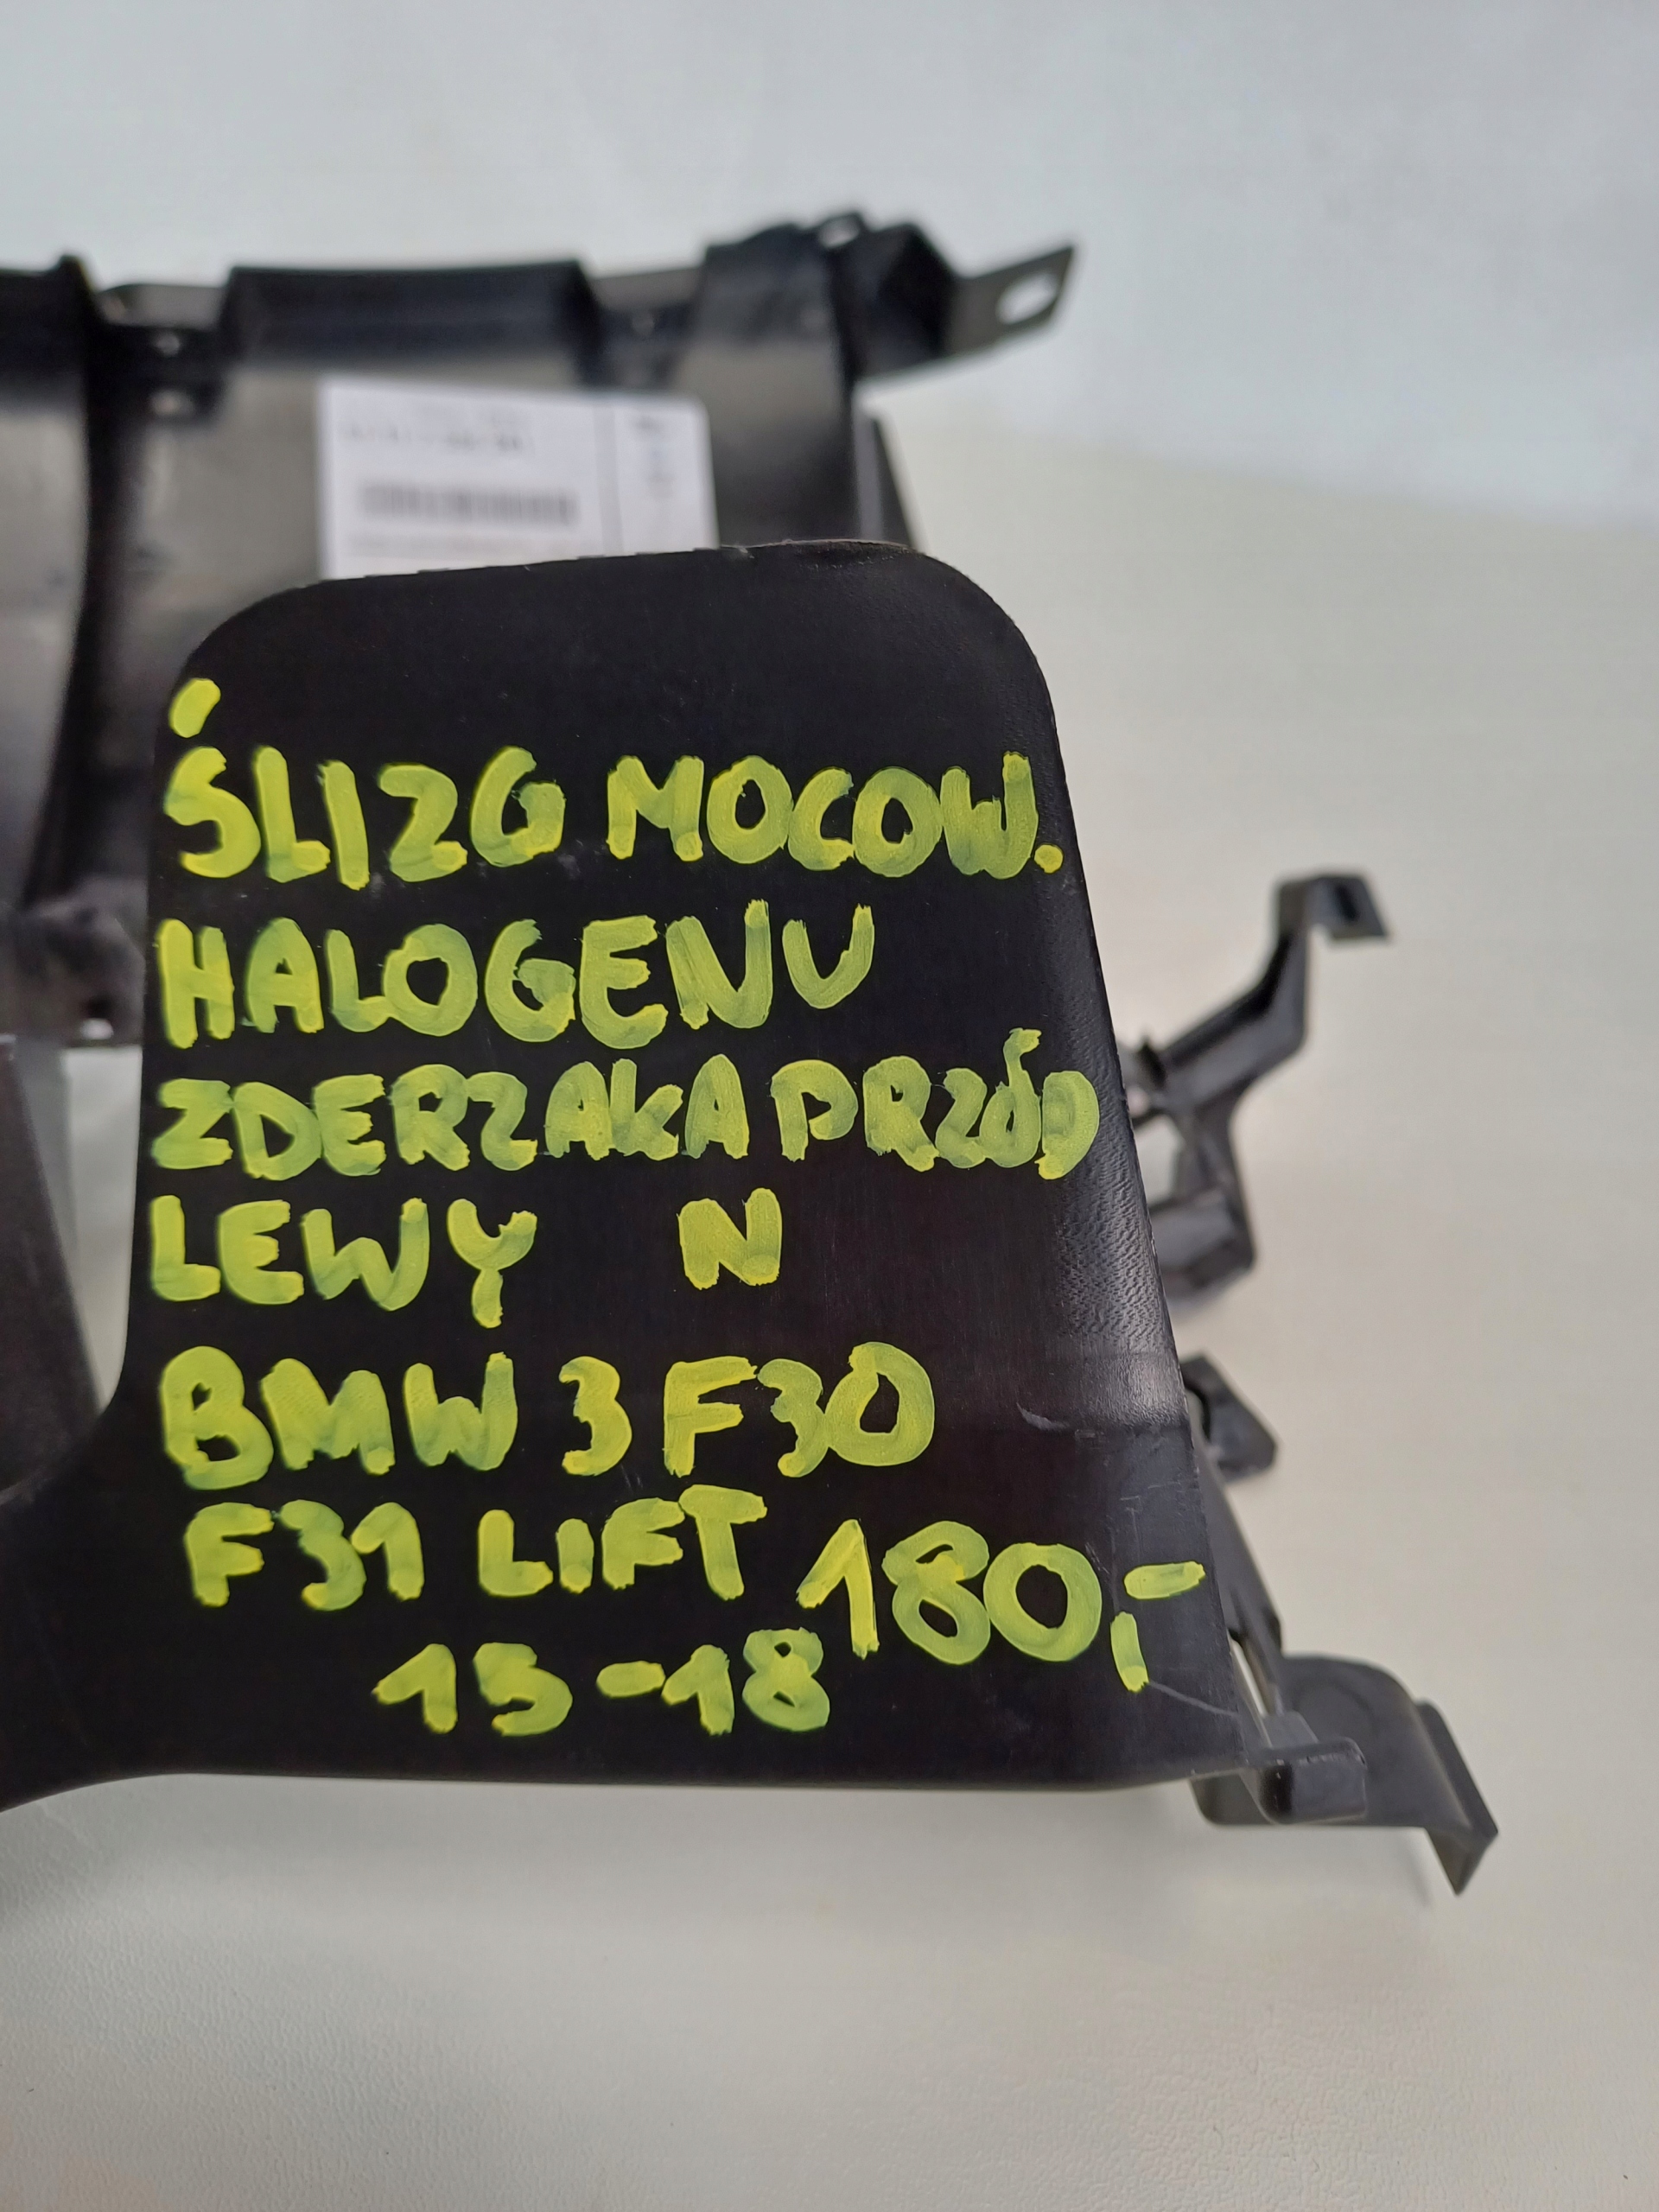 ŚLIZG MOCOW.
HALOGENU
ZDERZAKA PRZÓD
LEWY N
BMW 3 F30
F31 LIFT 180,-
15-18